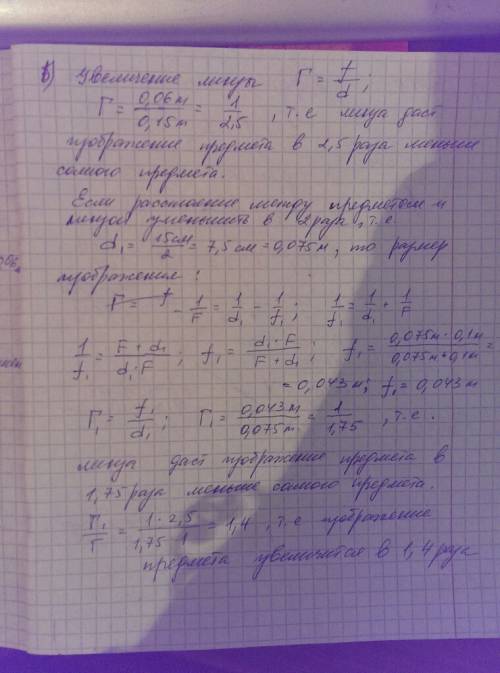 в) Увеличение линзы Г = f/d;
Г = 0,06м/0,15м = 1/2,5, т.е линза даст
изображение предмета в 2,5 раза меньше
самого предмета.
Если расстояние между предметом и
линзой уменьшить в 2 раза, т.е.
d₁ = 15см/2 = 7,5 см = 0,075м, то размер
изображения:
Г = f - 1/F = 1/d₁ - 1/f₁; 1/f₁ = 1/d₁ + 1/F
1/f₁ = F + d₁/d₁·F; f₁ = d₁·F/F + d₁; f₁ = 0,075м·0,1м/0,075м+0,1м =
= 0,043м; f₁ = 0,043м
Г₁ = f₁/d₁; Г₁ = 0,043м/0,075м = 1/1,75, т.е.
линза даст изображение предмета в
1,75 раза меньше самого предмета.
Г₁/Г = 1·2,5/1,75·1 = 1,4, т.е изображение
предмета увеличится в 1,4 раза